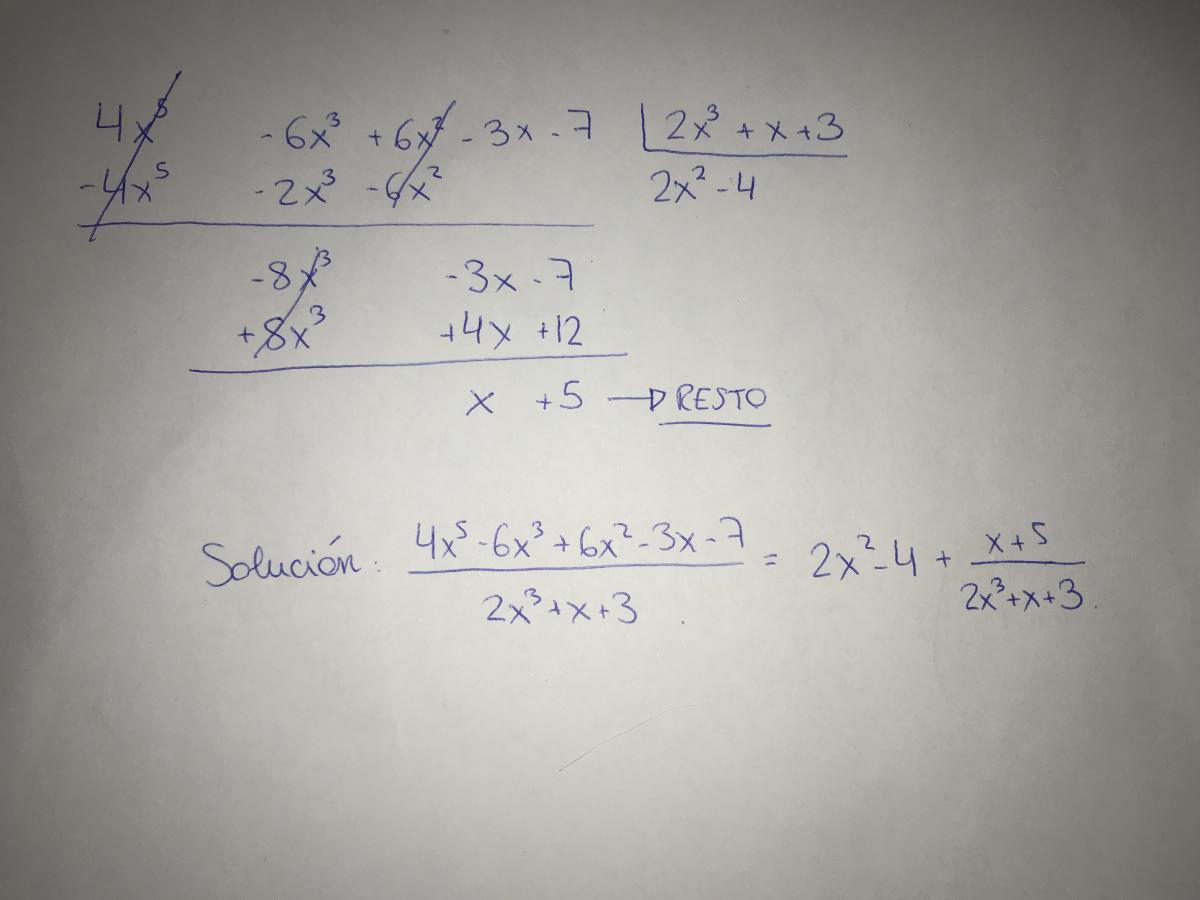 4x⁵ -6x³ +6x² -3x -7 | 2x³ + x + 3
-4x⁵ -2x³ -6x² 2x² -4
-8x³ -3x -7
+8x³ +4x +12
x +5 → RESTO
Solución: (4x⁵ -6x³ +6x² -3x -7)/(2x³ + x + 3) = 2x² -4 + (x+5)/(2x³ + x + 3).